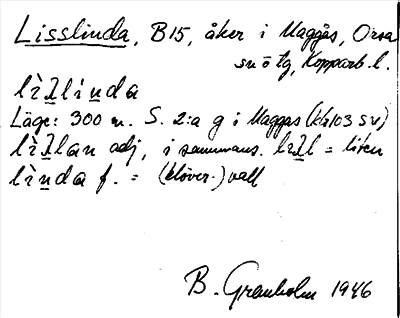 Lisslinda, B15, åker i Maggås, Orsa
sn o tg, Kopparb. l.
lìλlinda
Läge: 300 m. S. 2:a g i Maggas
lìλlan adj, i sammans. lìλl = liten
lìnda f. = (klöver-)vall
B. Granholm 1946